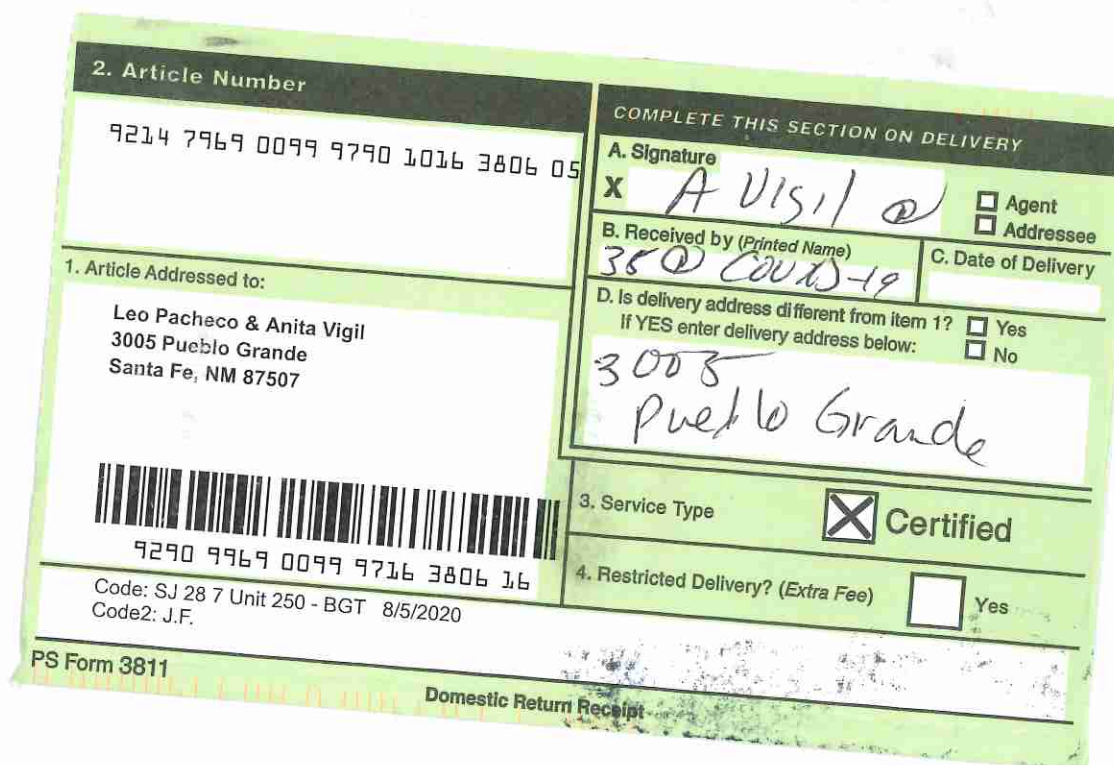 2. Article Number
9214 7969 0099 9790 1016 3806 05
1. Article Addressed to:
Leo Pacheco & Anita Vigil
3005 Pueblo Grande
Santa Fe, NM 87507
9290 9969 0099 9716 3806 16
Code: SJ 28 7 Unit 250 - BGT 8/5/2020
Code2: J.F.
PS Form 3811
Domestic Return Receipt
COMPLETE THIS SECTION ON DELIVERY
A. Signature
X A Vigil
Agent
Addressee
B. Received by (Printed Name)
COVID-19
C. Date of Delivery
D. Is delivery address different from item 1?
Yes
If YES enter delivery address below:
No
3005
Pueblo Grande
3. Service Type
Certified
4. Restricted Delivery? (Extra Fee)
Yes